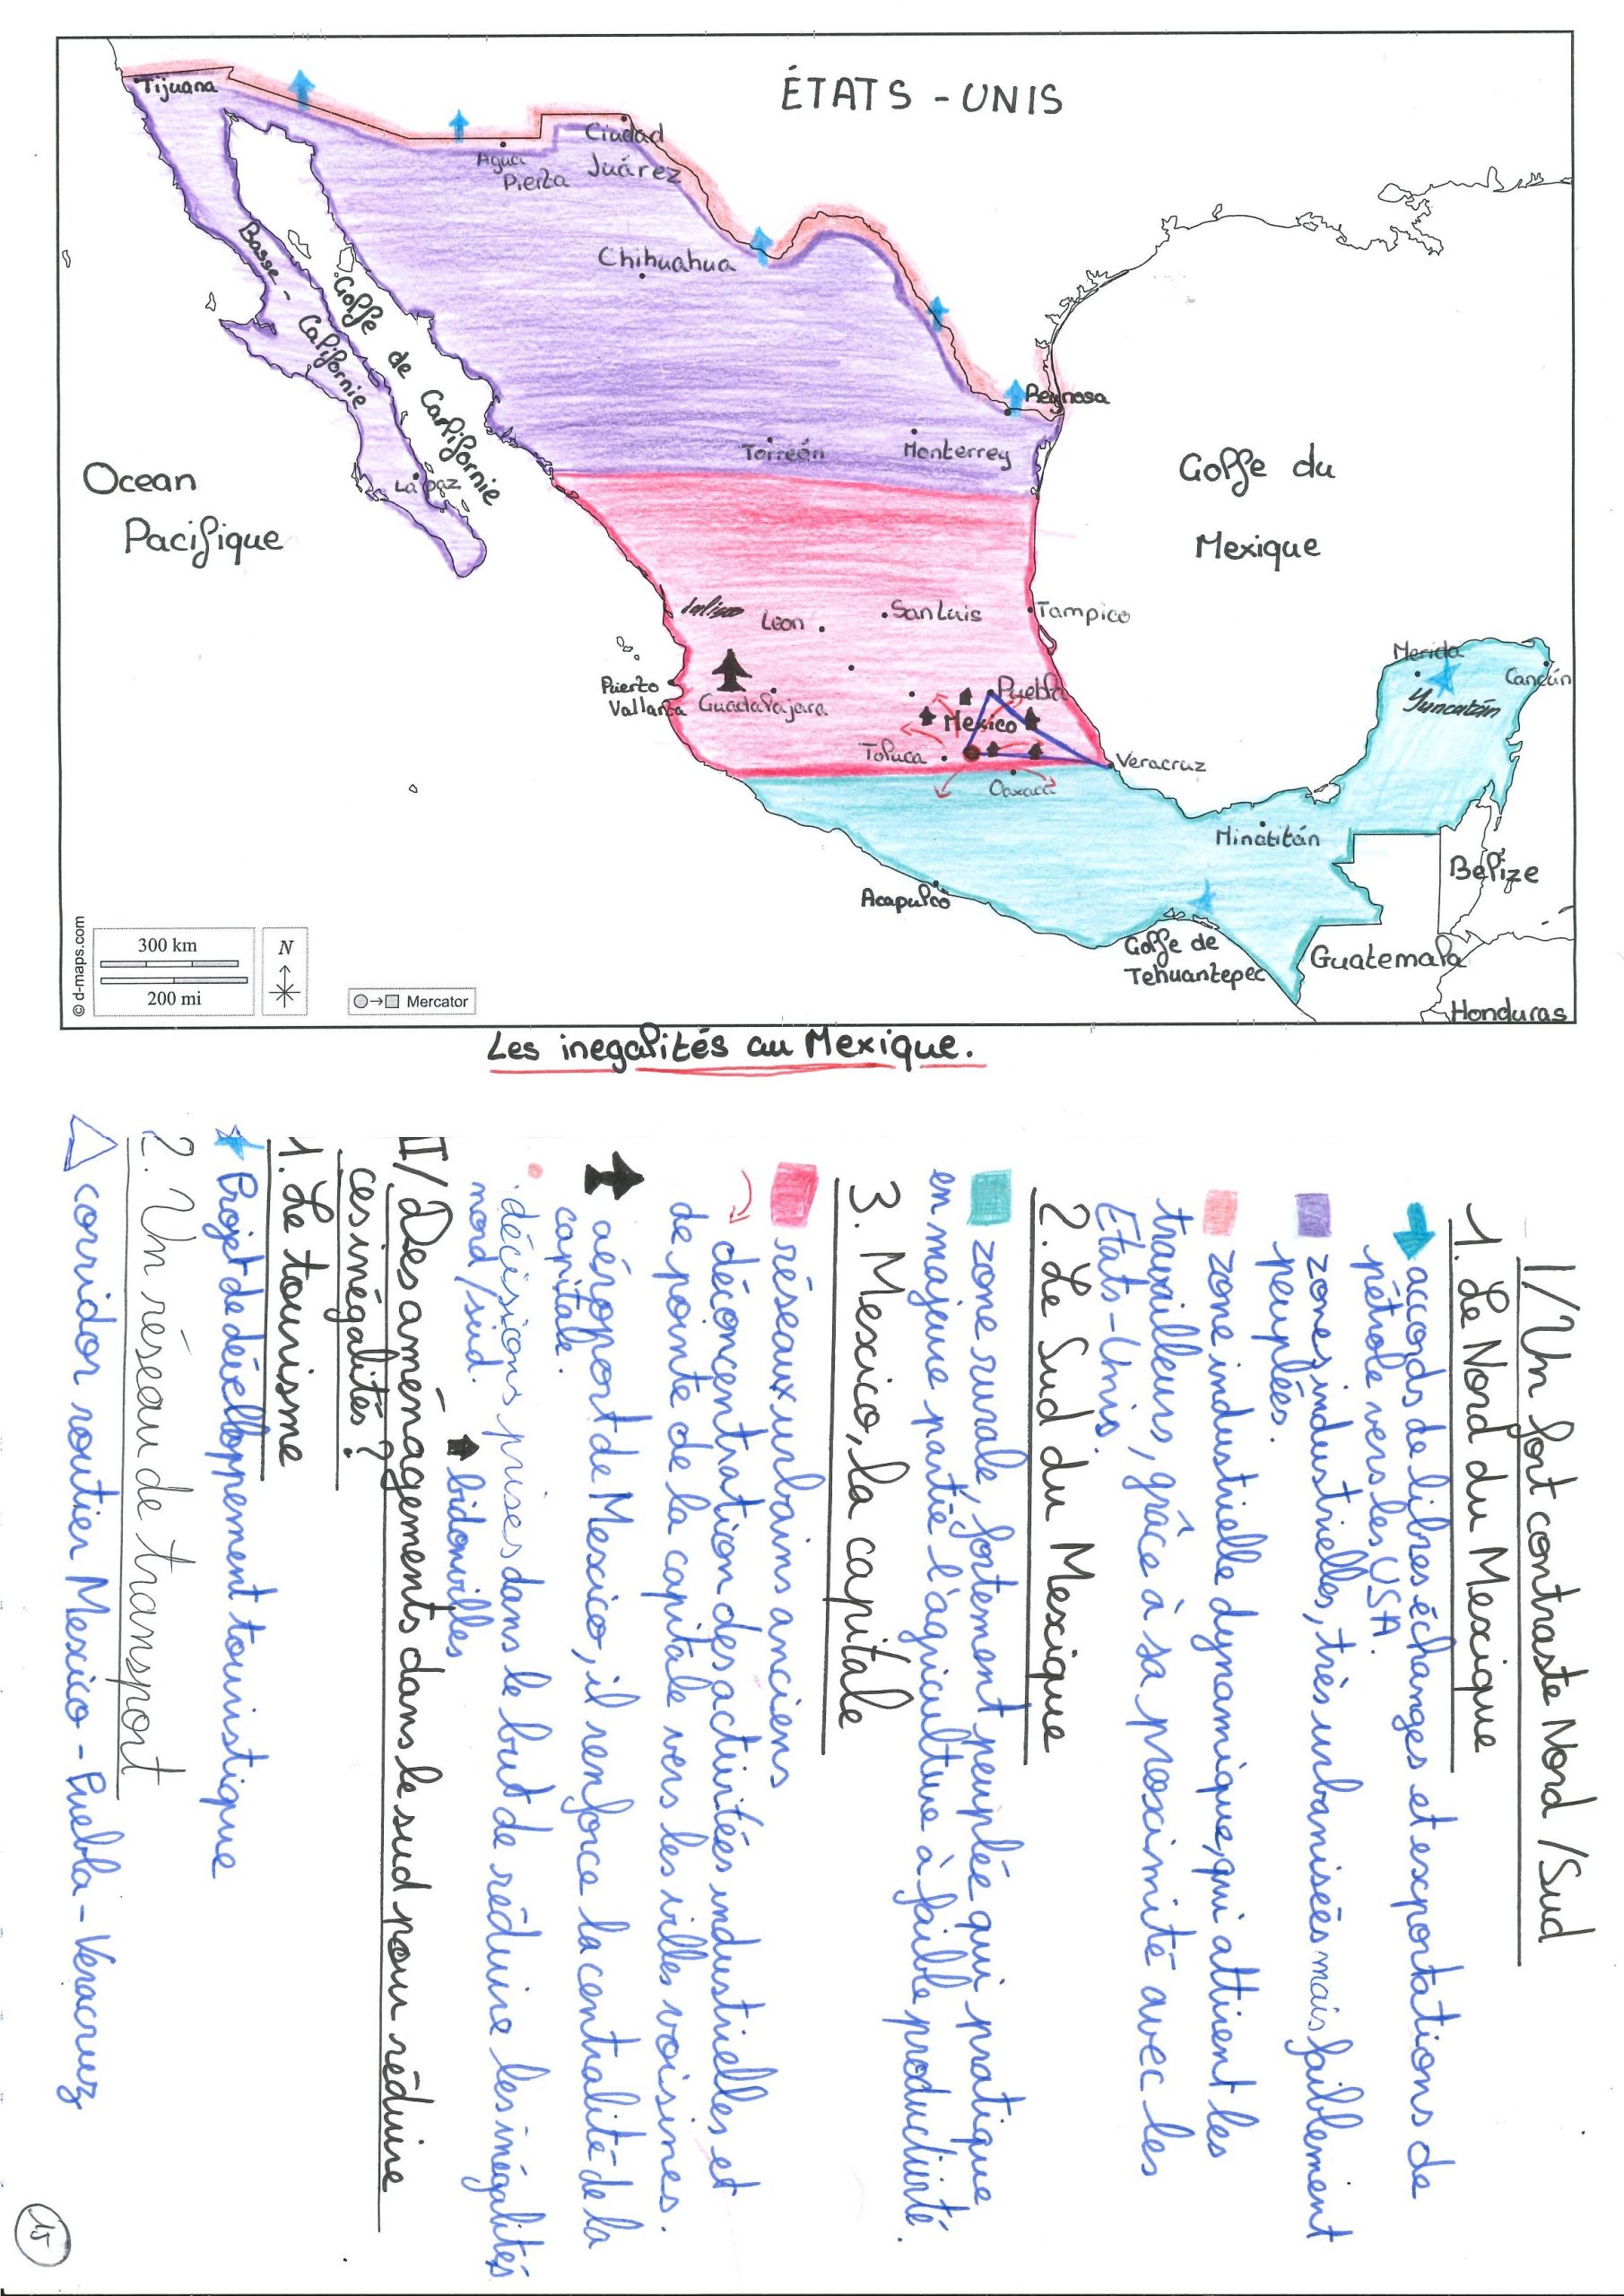 ÉTATS - UNIS
Tijuana
Ciudad
Juárez
Agua
Pierta
Chihuahua
Basse -
Californie
Golfe de Californie
Reynosa
Torreón
Monterrey
La paz
Ocean
Pacifique
Golfe du
Mexique
Jalisco
Léon
San Luis
Tampico
Puerto
Vallarta
Guadalajara
Puebla
Mexico
Toluca
Veracruz
Oaxaca
Merida
Cancún
Yuncatán
Minatitán
Acapulco
Golfe de
Tehuantepec
Belize
Guatemala
Honduras
© d-maps.com
300 km
200 mi
N
Mercator
Les inegalités au Mexique.
I/ Un fort contraste Nord /Sud
1. Le Nord du Mexique
accords de libres échanges et exportations de
pétrole vers les USA.
zones industrielles, très urbanisées mais faiblement
peuplées.
zone industrielle dynamique, qui attirent les
travailleurs, grâce à sa proximité avec les
Etats-Unis.
2. Le Sud du Mexique
zone rurale, fortement peuplée qui pratique
en majeure partie l'agriculture à faible productivité.
3. Mexico, la capitale
réseaux urbains anciens
déconcentration des activités industrielles et
de pointe de la capitale vers les villes voisines.
aéroport de Mexico, il renforce la centralité de la
capitale.
décisions prises dans le but de réduire les inégalités
nord/sud.
bidonvilles
II/ Des aménagements dans le sud pour réduire
ces inégalités ?
1. Le tourisme
Projet de développement touristique
2. Un réseau de transport
corridor routier Mexico - Puebla - Veracruz
15